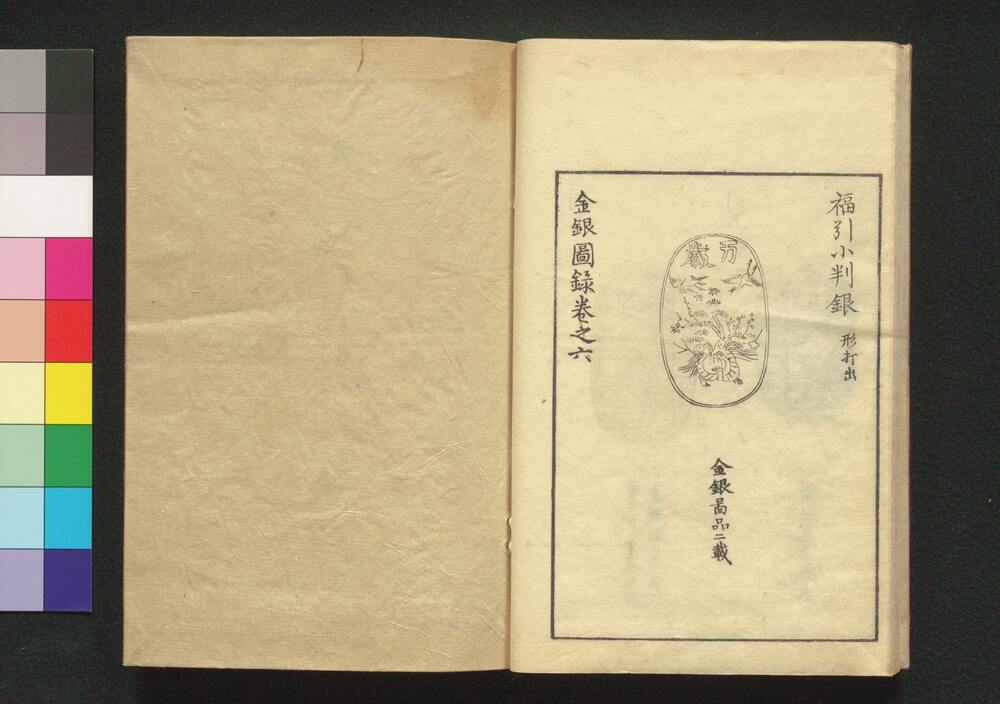 福引小判銀 形打出
万歳
金銀畨品ニ載
金銀圖録卷之六